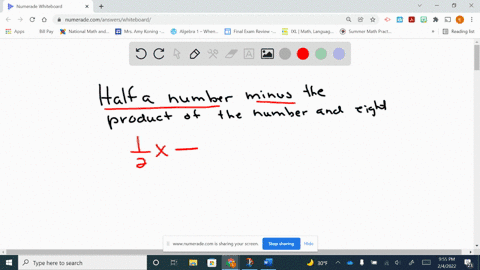 Numerade Whiteboard
numerade.com/answers/whiteboard/
Apps
Bill Pay
National Math and...
Mrs. Amy Koning -...
Algebra 1 – When...
Final Exam Review -...
IXL | Math, Languag...
Summer Math Pract...
Reading list
Half a number minus the
product of the number and eight
1/2 x —
www.numerade.com is sharing your screen.
Stop sharing
Hide
Type here to search
30°F
9:55 PM
2/4/2022